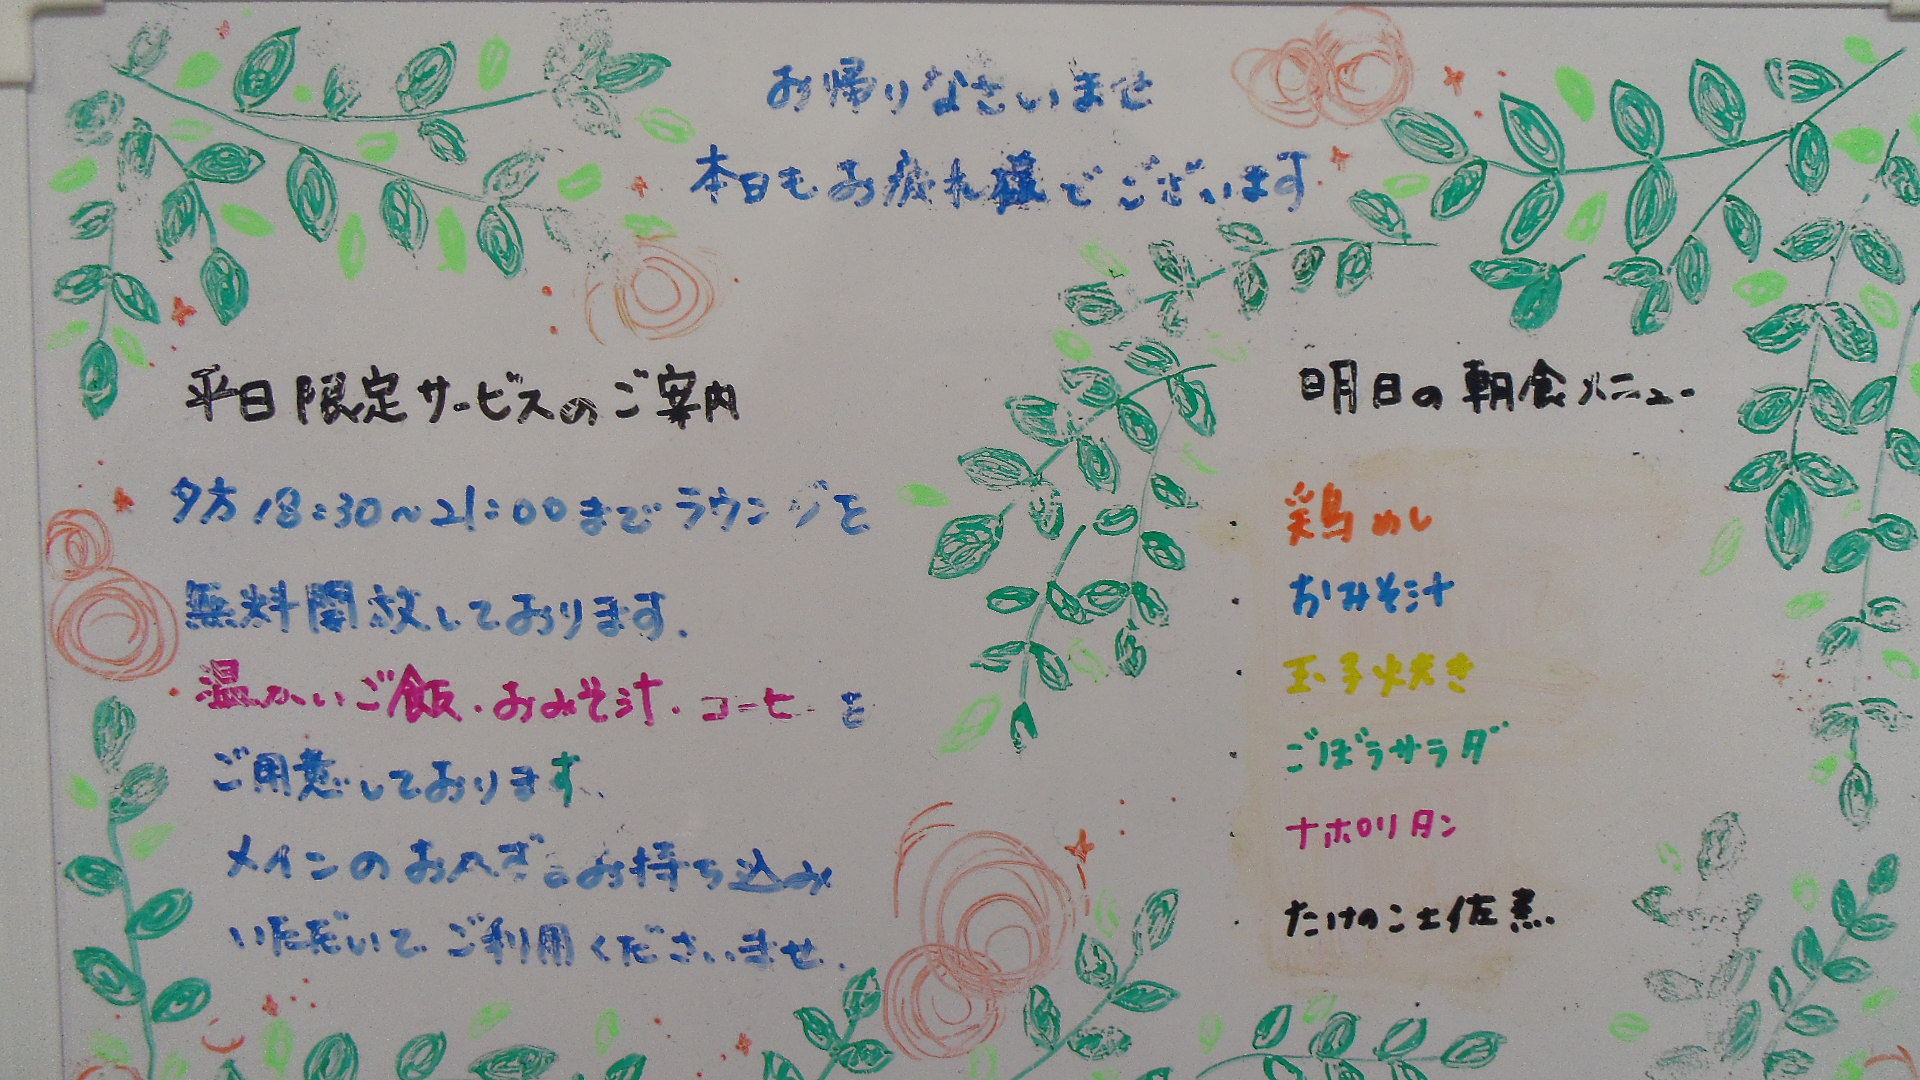 お帰りなさいませ
本日もお疲れ様でございます
平日限定サービスのご案内
夕方18:30～21:00までラウンジを
無料開放しております.
温かいご飯・おみそ汁・コーヒーを
ご用意しております.
メインのおかずをお持ち込み
いただいてご利用くださいませ.
明日の朝食メニュー
・鶏めし
・おみそ汁
・玉子焼き
・ごぼうサラダ
・ナポリタン
・たけのこ土佐煮